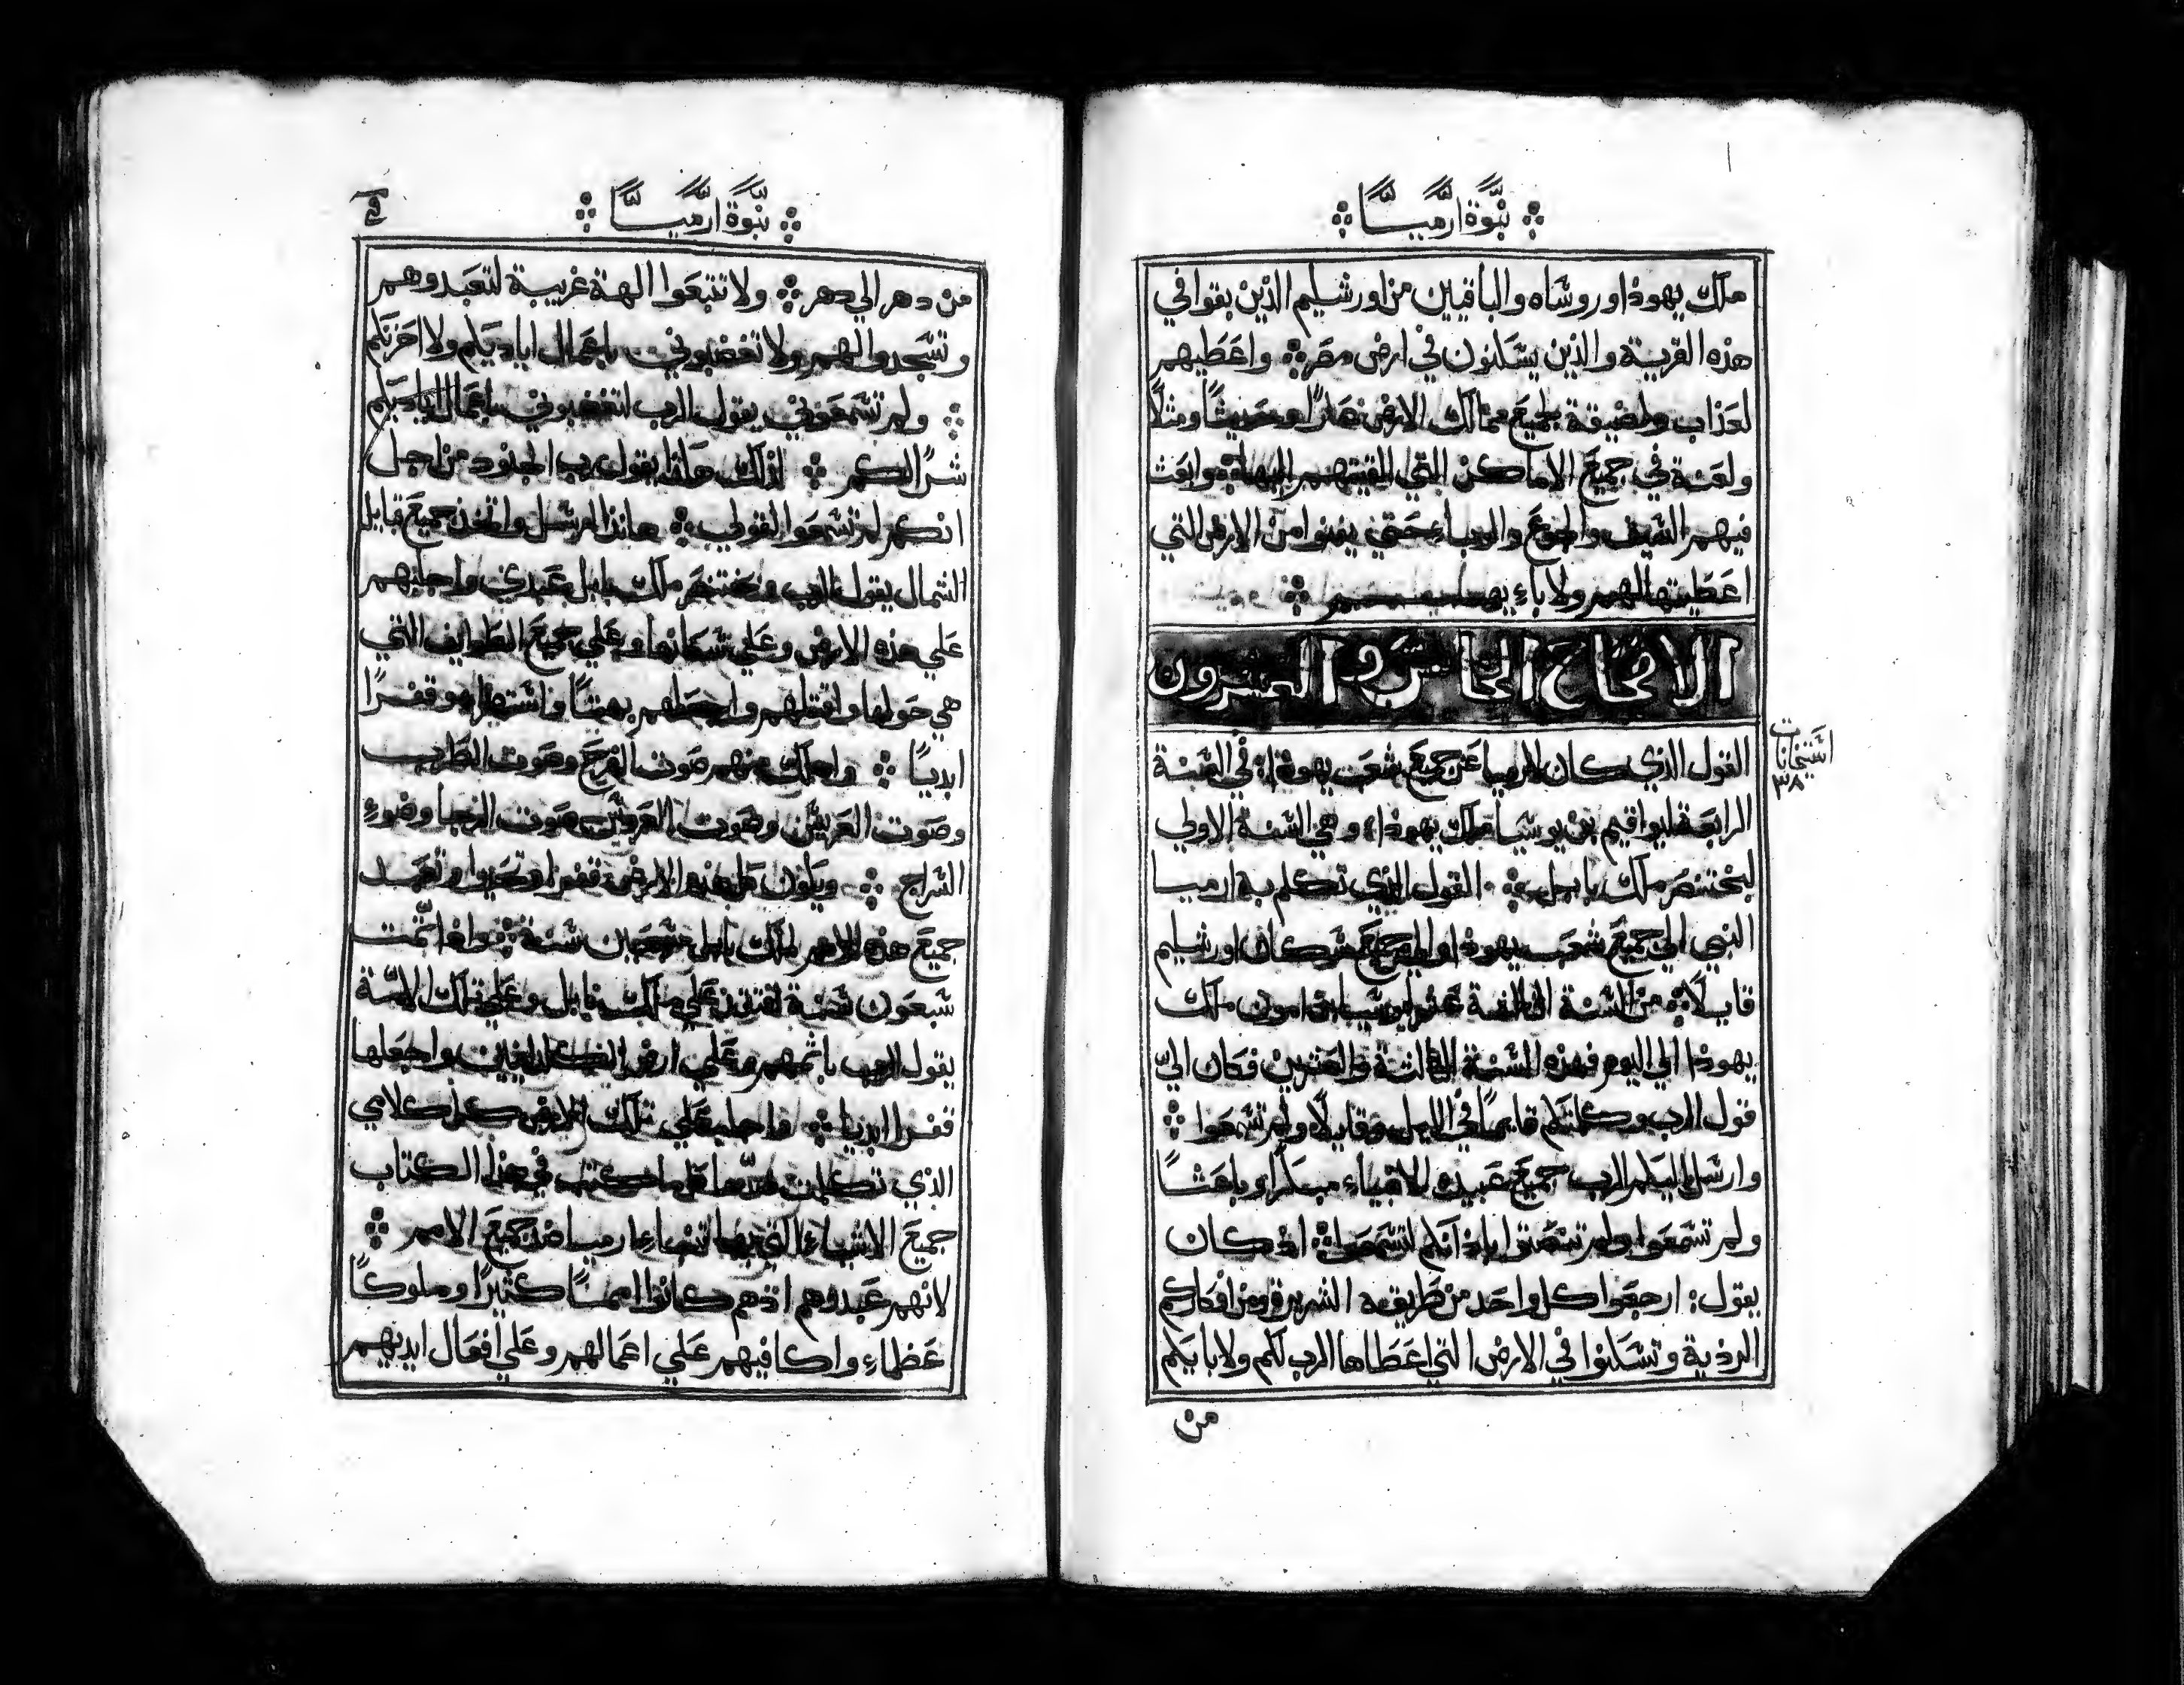 نبوة ارميا
ملك يهوذا وروساه والباقيين من اورشليم الذين بقوا في
هذه القرية والذين يسكنون في ارض مصر واعطيهم
لعذاب ولضيقة لجميع ممالك الارض عارًا وحديثًا ومثلًا
ولعنة في جميع الاماكن التي القيتهم اليها وابعث
فيهم السيف والجوع والوباء حتي يفنوا من الارض التي
اعطيتها لهم ولاباءِيهم
الاصحاح الخامس والعشرون
القول الذي كان لارميا عن جميع شعب يهوذا في السنة
الرابعة ليواقيم بن يوشيا ملك يهوذا وهي السنة الاولي
لبختنصر ملك بابل القول الذي تكلم به ارميا
النبي الي جميع شعب يهوذا والي جميع سكان اورشليم
قايلًا من السنة الثالثة عشر ليوشيا بن امون ملك
يهوذا الي اليوم فهذه السنة الثالثة والعشرين فكان اليّ
قول الرب وكلمتكم قايمًا في الليل وقايلًا ولم تسمعوا
وارسل اليكم الرب جميع عبيده الانبياء مبكرًا وباعثًا
ولم تسمعوا ولم تنصتوا باذانكم لتسمعوا اذ كان
يقول: ارجعوا كل واحد من طريقه الشريرة ومن افكاركم
الرذية وتسكنوا في الارض التي اعطاها الرب لكم ولابايكم
من
استحانات
٣٨
نبوة ارميا
من دهر الي دهر ولا تتبعوا الهة غريبة لتعبدوهم
وتسجدوا لهم ولا تغضبوني باعمال اياديكم ولا احزنكم
ولم تسمعوني يقول الرب لتغضبوني باعمال اياديكم
شرًا لكم لذلك هكذا يقول رب الجنود من اجل
انكم لم تسمعوا لقولي هانذا ارسل واخذ جميع قبايل
الشمال يقول الرب وبختنصر ملك بابل عبدي واجلبهم
علي هذه الارض وعلي سكانها وعلي جميع الطوايف التي
هي حولها واقتلهم واجعلهم بهتًا واستصفارهم وقفرًا
ابديًا واهلك منهم صوت الفرح وصوت الطرب
وصوت العريس وصوت العروس صوت الرحا وضوءِ
السراج ويكون كل هذه الارض قفرا وتحيرا وتعبد
جميع هذه الامم لملك بابل سبعين سنة واذا تمت
سبعون سنة افتقد علي ملك بابل وعلي تلك الامة
يقول الرب باثمهم وعلي ارض الكلدانيين واجعلها
قفرا ابديا واجلب علي تلك الارض كل كلامي
الذي تكلمت ضدها كل ما كتب في هذا الكتاب
جميع الاشياء التي بها تنباءِ ارميا ضد جميع الامم
لانهم عبدوهم اذ هم كانوا اممًا كثيرًا وملوكًا
عظماءِ واكافيهم علي اعمالهم وعلي افعال ايديهم